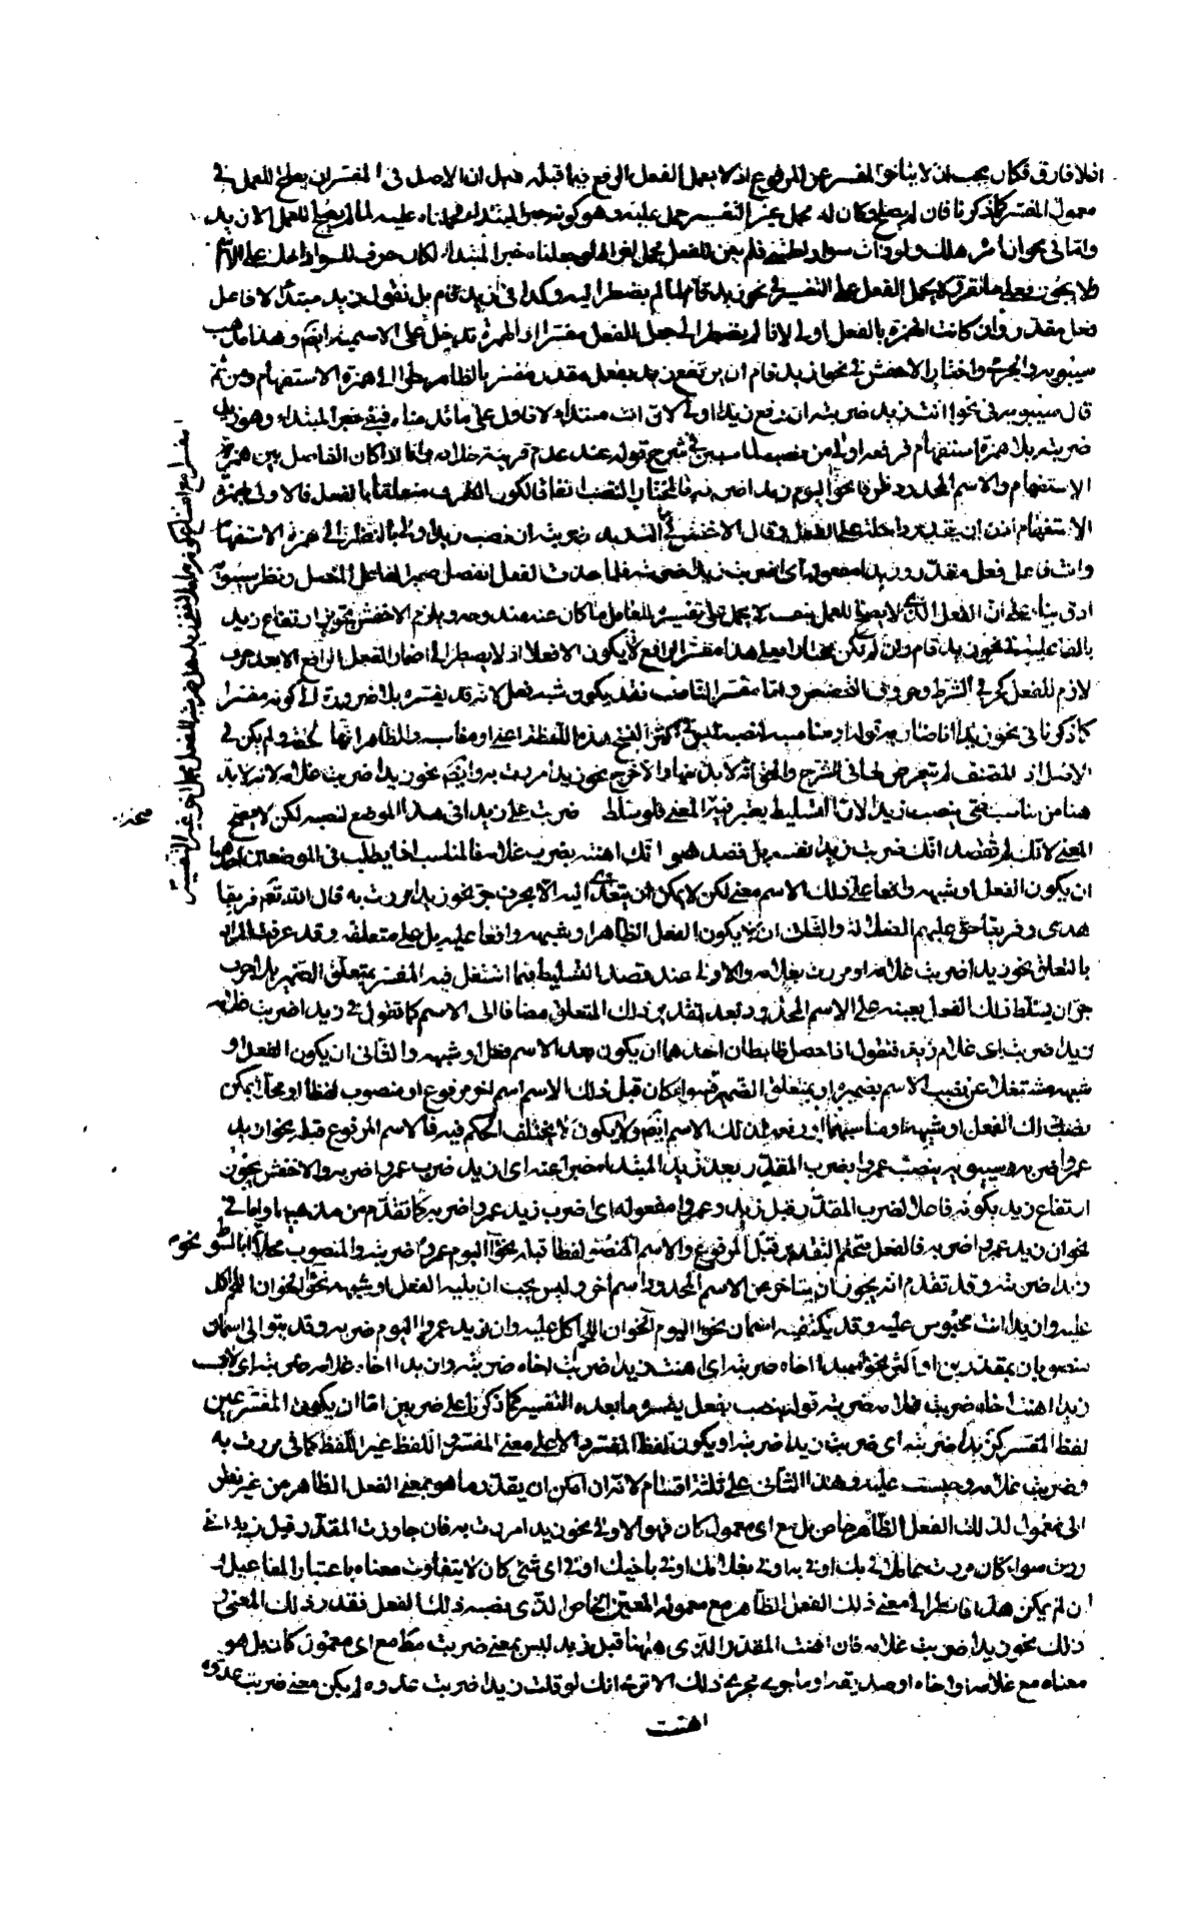 اذ لا فارق فكان يجب ان لا يتأخر المفسر عن المرفوع اذ لا يعمل الفعل الرافع فيما قبله قيل ان الاصل فى المفسر ان يصلح للعمل فى
معمول المفسر كما ذكرنا فان لم يصلح وكان له محمل غير التفسير حمل عليه وهو كونه خبر المبتداء فحملناه عليه لما لم يصلح للعمل الا زيد
واما فى نحو ان امرؤ هلك ولو ذات سوار لطمتنى فلم يكن للفعل محمل اخر اذ لو جعلناه خبر المبتداء لكان حرف الشرط داخلا على الاسمية
ولا يجوز فعلى ما تقرر لا يحمل الفعل على التفسير فى نحو زيد قام لما لم يضطر اليه وكذا فى ازيد قام بل نقول زيد مبتدأ لا فاعل
فعل مقدر وان كانت الهمزة بالفعل اولى لانا لم نضطر الى جعل الفعل مفسرا اذ الهمزة تدخل على الاسمية ايضا وهذا مذهب
سيبويه والجرمى واختار الاخفش فى نحو ازيد قام ان يرتفع زيد بفعل مقدر مفسر بالظاهر نظرا الى همزة الاستفهام ومن ثم
قال سيبويه فى نحو اانت زيد ضربته ان رفع زيد اولى لان انت مبتدأ لا فاعل على ما قدمناه فبقى خبر المبتداء وهو زيد
ضربته بلا همزة استفهام فرفعه اولى من نصبه لما سيبين فى شرح قوله عند عدم قرينة خلافه واما اذا كان الفاصل بين همزة
الاستفهام والاسم المحدود ظرفا نحو اليوم زيدا ضربته فالمختار النصب اتفاقا لكون الظرف متعلقا بالفعل فالاولى بهمزة
الاستفهام اذن ان يقدر داخلة على الفعل وقال الاخفش فى اانت زيد ضربته ان نصب زيدا اولى بالنظر الى همزة الاستفهام
وانت فاعل فعل مقدر وزيدا مفعوله اى اضربت زيدا ضربته فلما حذف الفعل انفصل ضمير الفاعل المتصل ونظر سيبويه
ادق بناء على ان الفعل الذى لا يصلح للعمل بنفسه لا يحمل على تفسيره للعامل ما كان عنه مندوحة ويلزم الاخفش تجويز ارتفاع زيد
بالفاعلية فى نحو زيد قام وان لم يكن مختارا فعلى هذا مفسر الرافع لا يكون الا فعلا اذ لا يضطر الى اضمار الفعل الرافع الا بعد حرف
لازم للفعل كحرفى الشرط وحروف التحضيض واما مفسر الناصب فقد يكون شبه فعل لانه قد يفسره بلا ضرورة الى كونه مفسرا
كما ذكرنا فى نحو زيدا انا ضاربه قوله او مناسبه لنصبه ليس فى اكثر النسخ هذه اللفظة اعنى او مناسبه والظاهر انها ملحقة ولم يكن فى
الاصل اذ المصنف لم يتعرض لها فى الشرح والحق انه لا بد منها والا خرج نحو زيدا مررت به وايضا نحو زيدا ضربت غلامه لانه لا بد
هنا من مناسب حتى ينصب زيدا لان التسليط يعتبر فيه المعنى فلو سلط ضربت على زيد فى هذا الموضع لنصبه لكن لا يصح
المعنى لانك لم تقصد انك ضربت زيدا نفسه بل قصدت انك اهنته بضرب غلامه فالمناسب اذا يطلب فى الموضعين احدهما
ان يكون الفعل او شبهه واقعا على ذلك الاسم معنى لكن لا يمكن ان يتعدى اليه الا بحرف جر نحو زيدا مررت به قال الله تعم فريقا
هدى وفريقا حق عليهم الضلالة والثانى ان لا يكون الفعل الظاهر او شبهه واقعا عليه بل على متعلقه وقد عرفت المراد
بالتعلق نحو زيدا ضربت غلامه او مررت بغلامه والاولى عند قصد التسليط فيما اشتغل فيه المفسر بمتعلق الضمير بلا حرف
جر ان يسلط ذلك الفعل بعينه على الاسم المحدود بعد تقدير ذلك المتعلق مضافا الى الاسم كما تقول فى زيدا ضربت غلامه
زيدا ضربته اى غلام زيد فنقول اذا حصل ضابطان احدهما ان يكون بعد الاسم فعل او شبهه والثانى ان يكون الفعل او
شبهه مشتغلا عن نصب الاسم بضميره او بمتعلق الضمير فسواء كان قبل ذلك الاسم اسم اخر مرفوع او منصوب لفظا او محلا يمكن
نصب ذلك الفعل او شبهه او مناسبهما او رفعه لذلك الاسم ايضا ولا يكون لا يختلف الحكم فيه فالاسم المرفوع قبله نحو ان زيد
عمروا ضربه وسيبويه ينصب عمروا بضرب المقدر بعد زيد المبتداء خبرا عنه اى ان زيد ضرب عمروا ضربه والاخفش يجوز
ارتفاع زيد بكونه فاعلا لضرب المقدر قبل زيد وعمروا مفعوله اى ضرب زيد عمروا ضربه كما تقدم من مذهبهما واما فى
نحو ان زيد عمروا ضربه فالفعل متحتم التقدير قبل المرفوع والاسم المنصوب لفظا قبله نحو اليوم عمروا ضربته والمنصوب محلا نحو ابالسوط
زيدا ضربته وقد تقدم انه يجوز ان يتاخر عن الاسم المحدود اسم اخر وليس يجب ان يليه الفعل او شبهه نحو الخوان اللحم اكل
عليه وان زيدا انت محبوس عليه وقد يكتنفه اسمان نحو اليوم الخوان اللحم اكل عليه وان زيد عمروا اليوم ضربه وقد يتوالى اسمان
منصوبان بمقدرين او اكثر نحو ازيدا اخاه ضربته اى اهنت زيدا ضربت اخاه ضربته وان زيدا اخاه غلامه ضربته اى لابست
زيدا اهنت اخاه ضربت غلامه ضربته قوله ينصب بفعل يفسره ما بعده التفسير كما ذكرنا على ضربين اما ان يكون المفسر عين
لفظ المفسر كزيدا ضربته اى ضربت زيدا ضربته او يكون لفظ المفسر دالا على معنى المفسر واللفظ غير اللفظ كما فى مررت به
وضربت غلامه وحبست عليه وهذا الثانى على ثلثة اقسام لانه ان امكن ان يقدر ما هو بمعنى الفعل الظاهر من غير نظر
الى معمول لذلك الفعل الظاهر خاص بل مع اى معمول كان فهو الاولى نحو زيدا مررت به فان جاوزت المقدر قبل زيدا بمعنى
مررت سواء كان مررت عاملا فى بك او فى به او فى بغلامك او فى باخيك او فى اى شئ كان لا يتفاوت معناه باعتبار المفاعيل
ان لم يمكن هذا فانظر الى معنى ذلك الفعل الظاهر مع معموله المعين الخاص الذى نصبه ذلك الفعل فقدر ذلك المعنى و
ذلك نحو زيدا ضربت غلامه فان اهنت المقدر الذى ههنا قبل زيد ليس بمعنى ضربت مطلقا مع اى معمول كان بل هو
معناه مع غلامه او اخاه او صديقه او ما جرى مجرى ذلك الا ترى انك لو قلت زيدا ضربت عدوه لم يكن معنى ضربت عدوه
اهنت